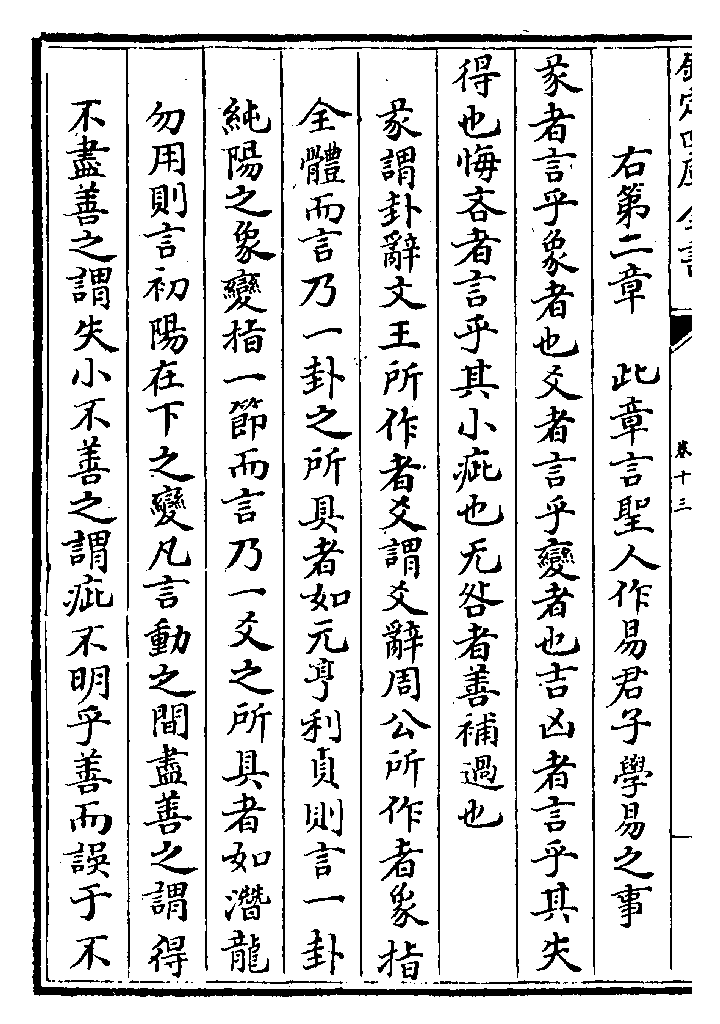 欽定四庫全書
卷十三
右第二章　此章言聖人作易君子學易之事
彖者言乎象者也爻者言乎變者也吉凶者言乎其失
得也悔吝者言乎其小疵也无咎者善補過也
彖謂卦辭文王所作者爻謂爻辭周公所作者象指
全體而言乃一卦之所具者如元亨利貞則言一卦
純陽之象變指一節而言乃一爻之所具者如潛龍
勿用則言初陽在下之變凡言動之間盡善之謂得
不盡善之謂失小不善之謂疵不明乎善而誤于不